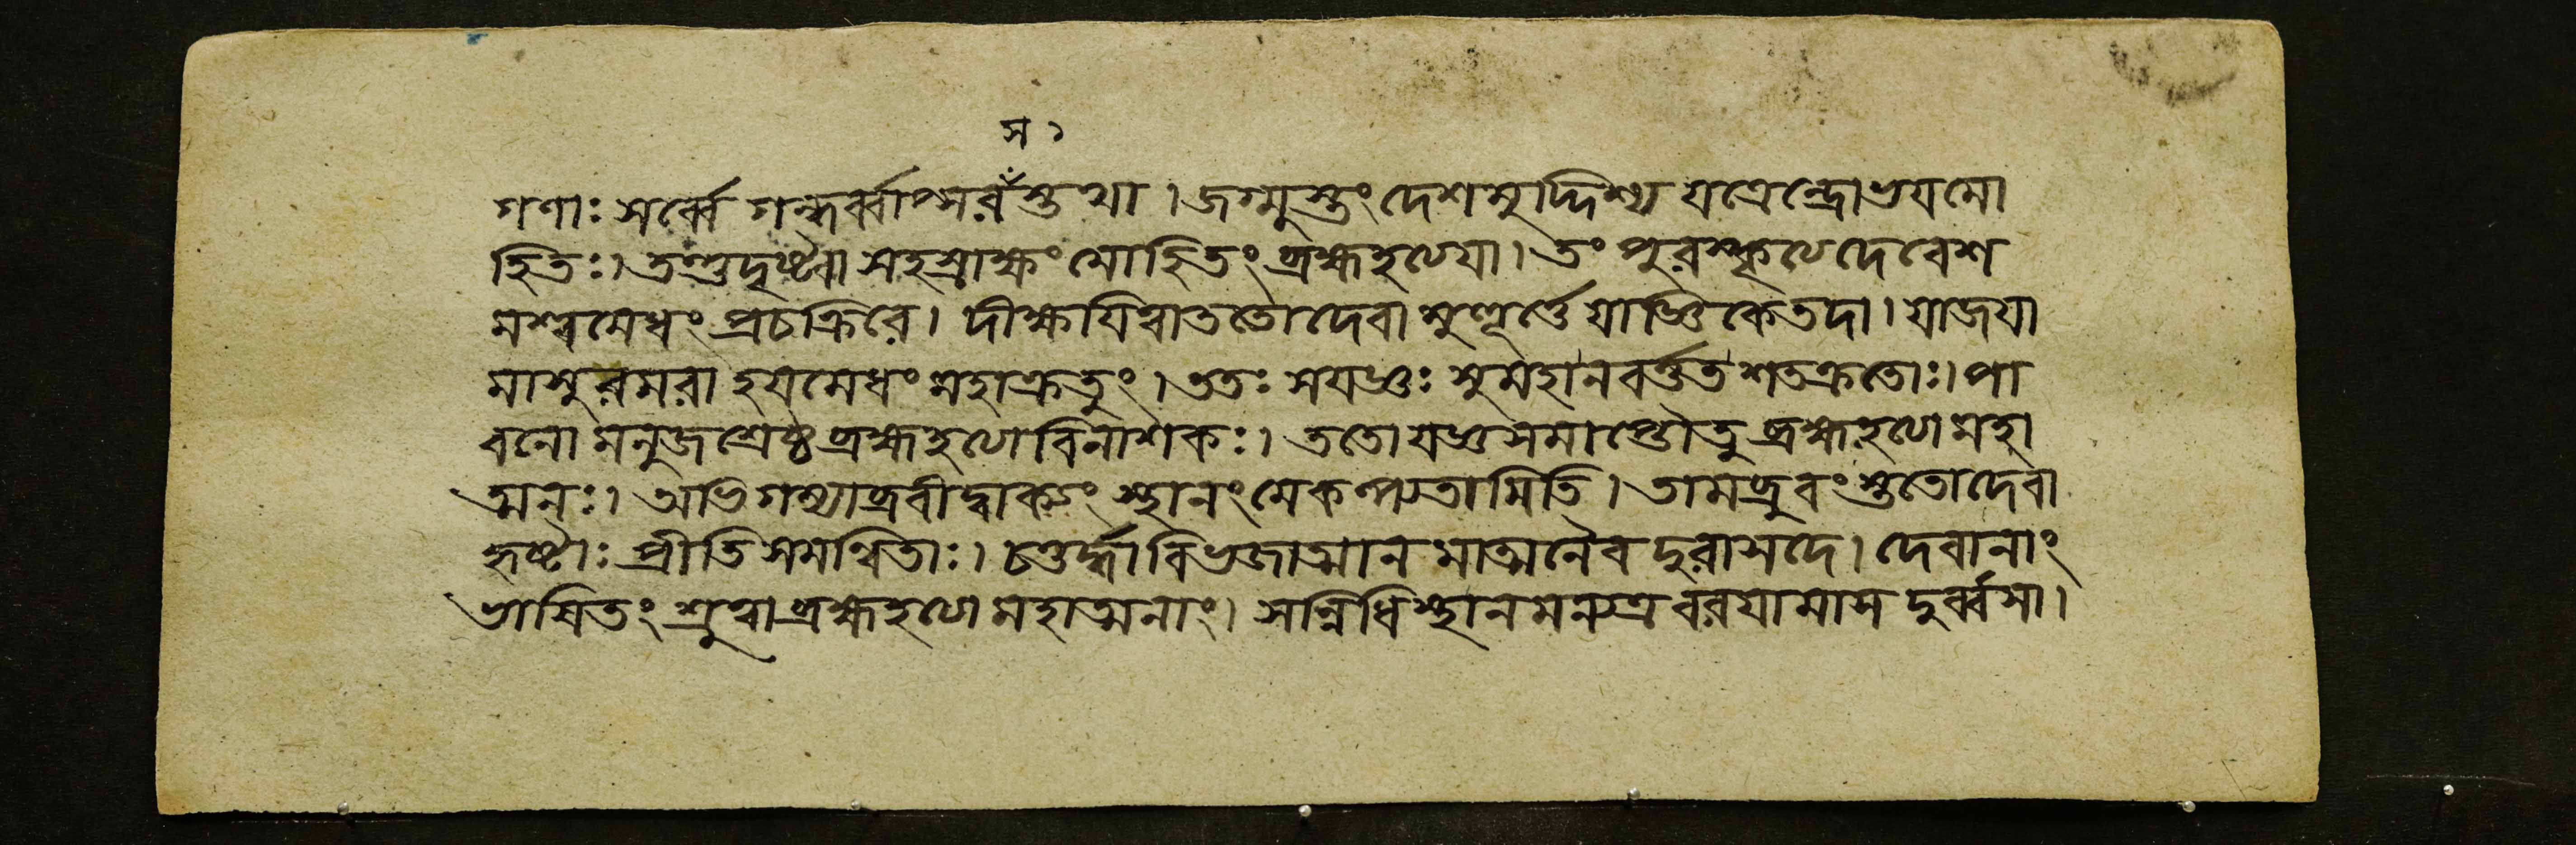 স ১
গণাঃ সর্ব্বে গন্ধর্ব্বাপ্সরঁস্তথা । জগ্মুস্তং দেশমুদ্দিশ্য যত্রেন্দ্রোভয়মো
হিতঃ। তন্তুদৃষ্ট্বা সহস্রাক্ষং মোহিতং ব্রহ্মহত্যয়া। তং পুরস্কৃত্যে দেবেশ
মশ্বমেধং প্রচক্রিরে। দীক্ষায়িত্বাততোদেবা সুপূর্ণে যাজ্ঞিকেতদা। যাজয়া
মাসুরমরা হয়মেধং মহাক্রতুং । ততঃ সযজ্ঞঃ সুমহানবর্ত্তত শতক্রতোঃ। পা
বনো মনুজশ্রেষ্ঠ ব্রহ্মহত্যোবিনাশকঃ। ততো যজ্ঞসমাপ্তৌতু ব্রহ্মহত্যোমহা
ত্মনঃ। অভিগম্যাব্রবীদ্বাক্যং স্থানংমেকল্প্যতামিতি। তামব্রুবংস্তুতোদেবা
হৃষ্টাঃ প্রীতিসমন্বিতাঃ। চতুর্দ্ধা বিভজাত্মান মাত্মনৈব দুরাসদে। দেবানাং
ভাষিতং শ্রুত্বাব্রহ্মহত্যো মহাত্মনাং। সন্নিধিস্থানমন্যত্র বরয়ামাস দুর্ব্বসা।